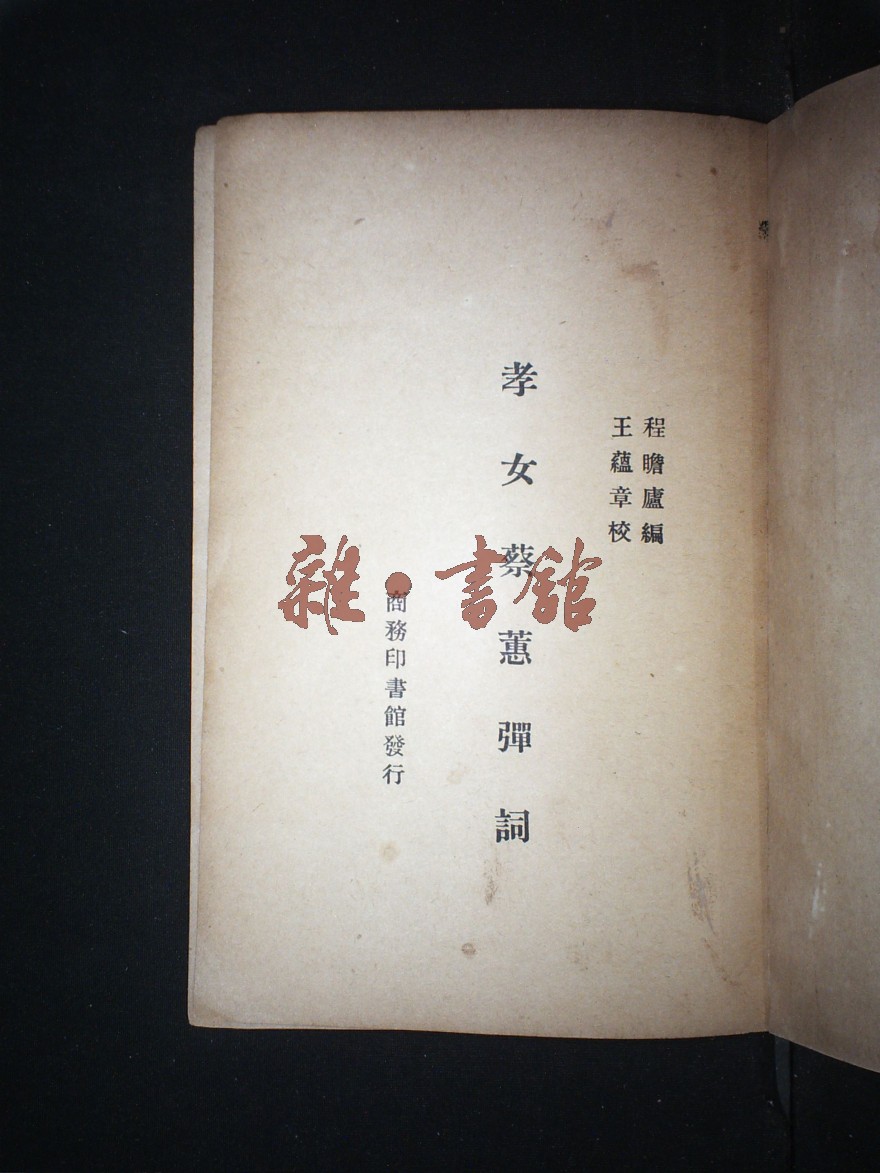 程瞻廬編
王蘊章校
孝女蔡蕙彈詞
商務印書館發行
雜·書館